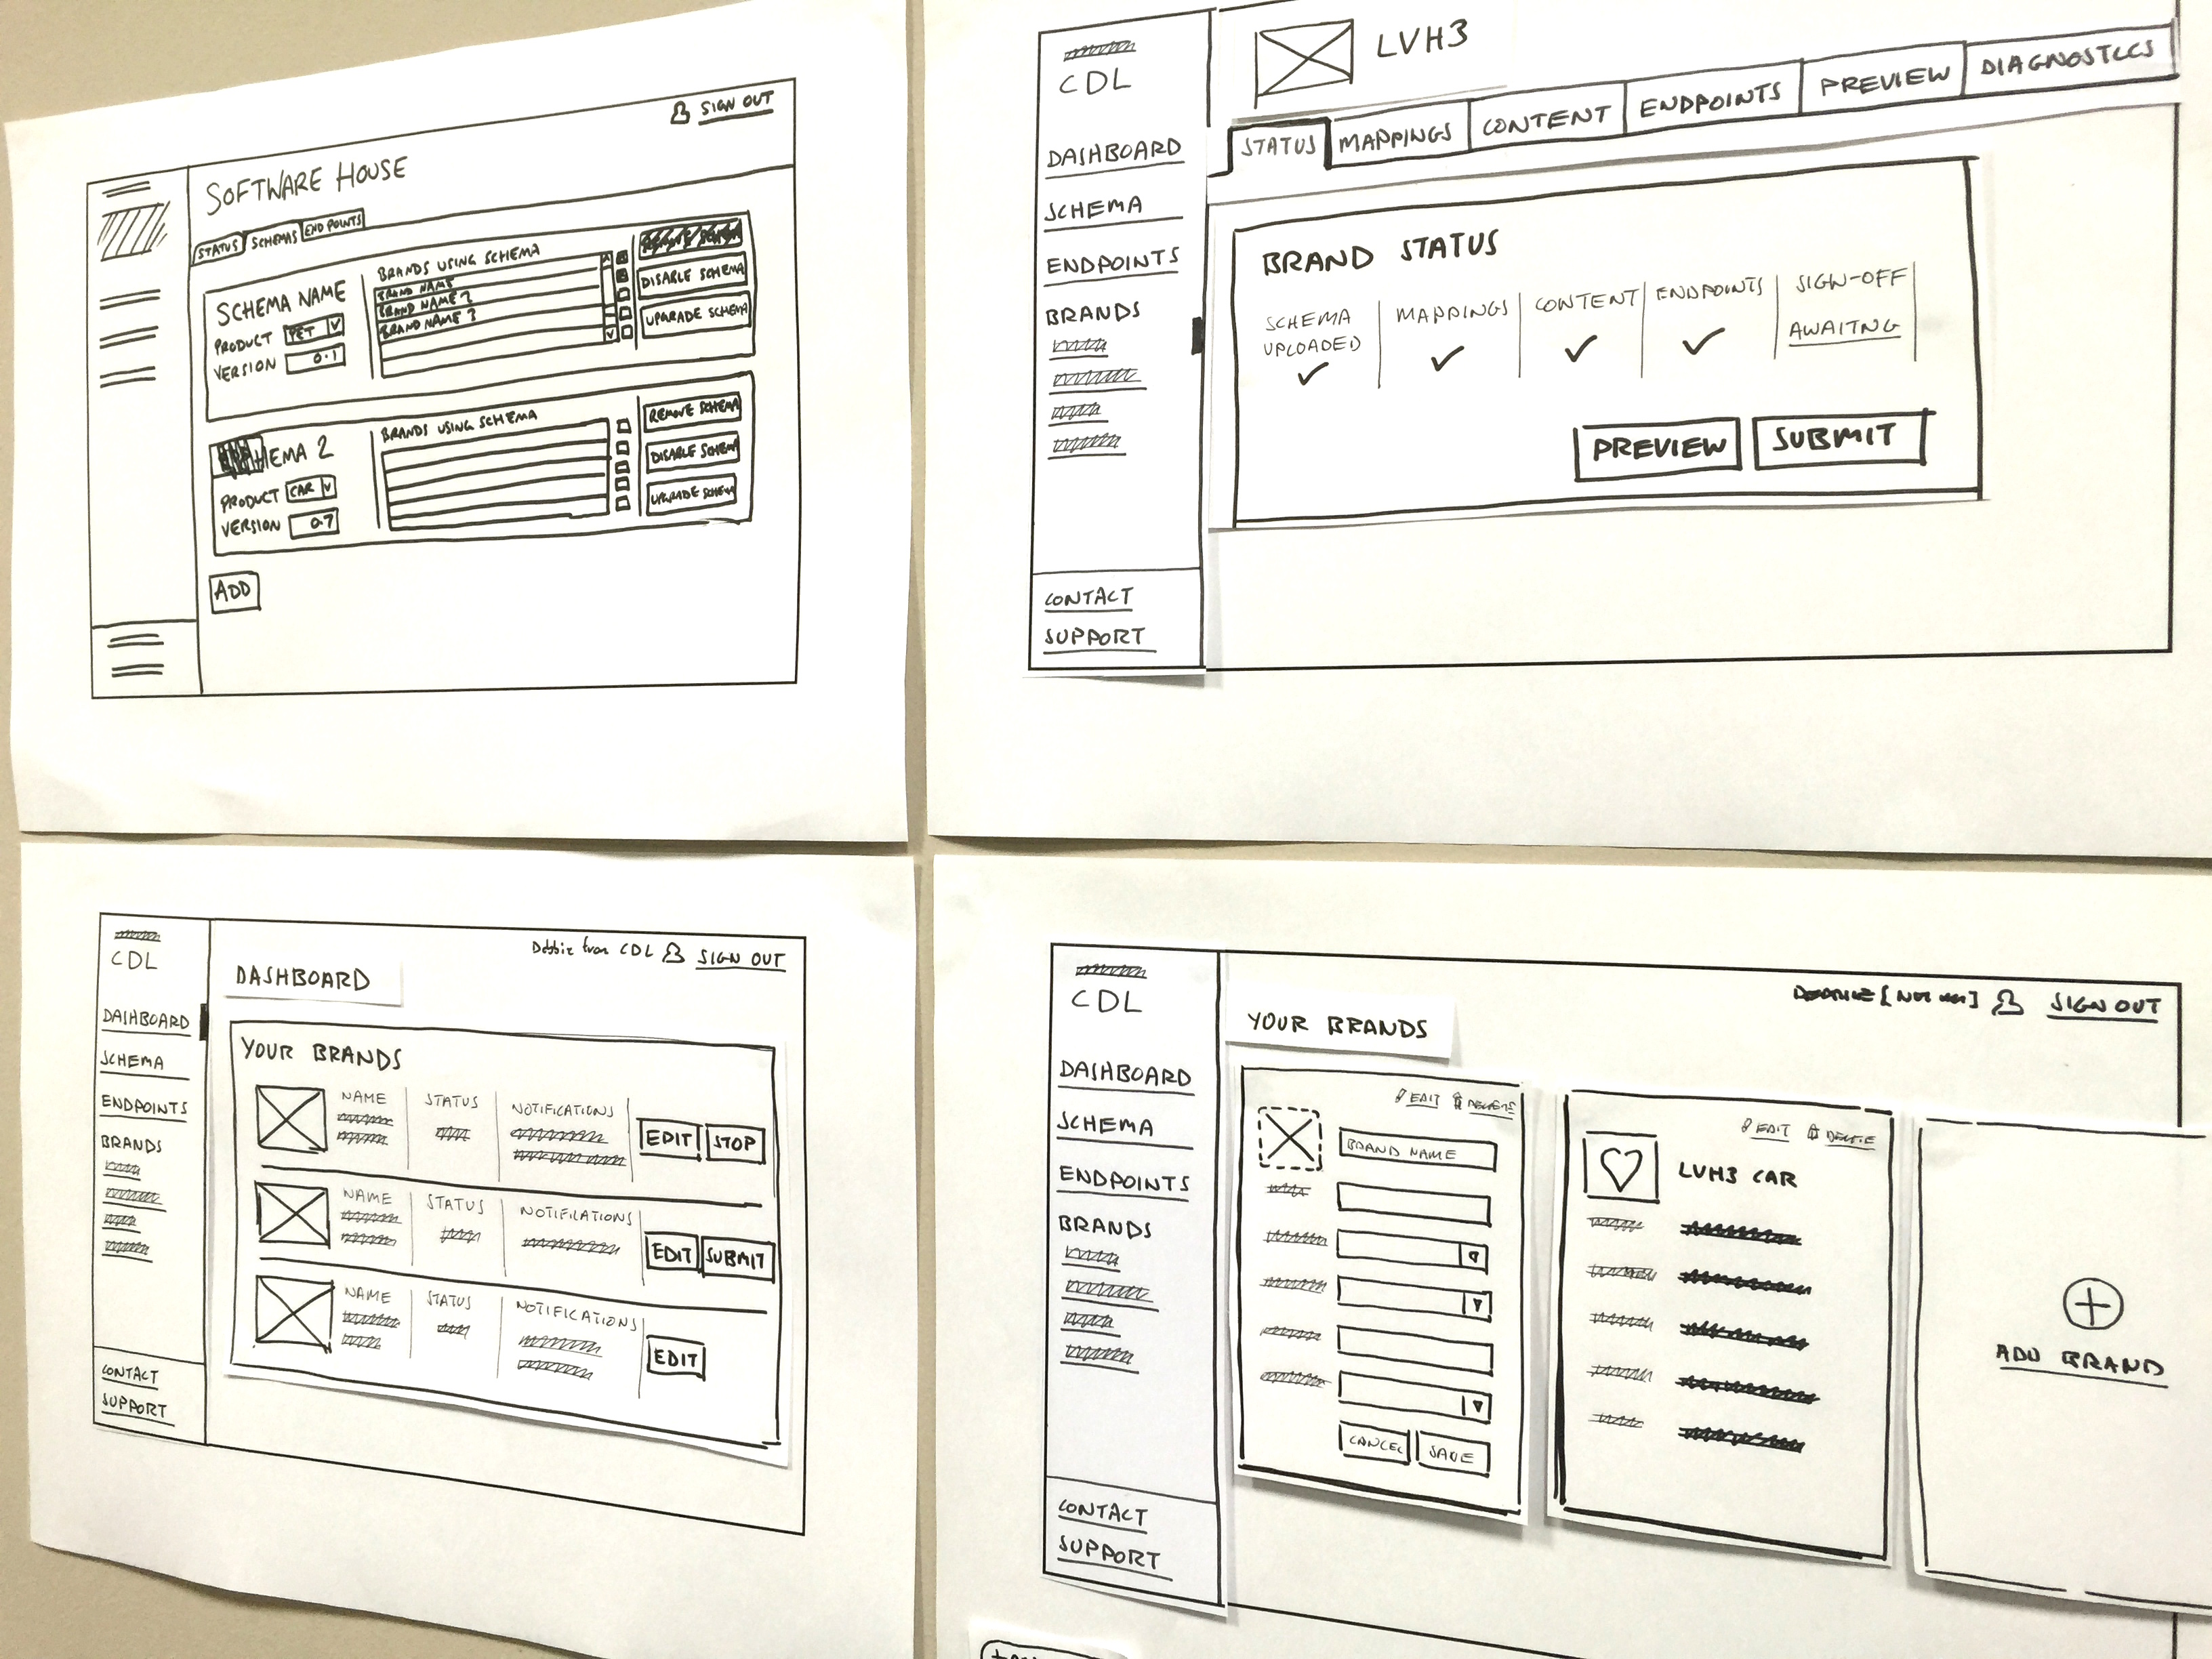 SIGN OUT
SOFTWARE HOUSE
STATUS SCHEMAS END POINTS
SCHEMA NAME
PRODUCT PET
VERSION 0.1
BRANDS USING SCHEMA
BRAND NAME
BRAND NAME 2
BRAND NAME 3
DISABLE SCHEMA
UPGRADE SCHEMA
HEMA 2
PRODUCT CAR
VERSION 0.7
BRANDS USING SCHEMA
REMOVE SCHEMA
DISABLE SCHEMA
UPGRADE SCHEMA
ADD
CDL
DASHBOARD
SCHEMA
ENDPOINTS
BRANDS
CONTACT
SUPPORT
LVH3
STATUS MAPPINGS CONTENT ENDPOINTS PREVIEW DIAGNOSTICS
BRAND STATUS
SCHEMA
UPLOADED
MAPPINGS
CONTENT
ENDPOINTS
SIGN-OFF
AWAITNG
PREVIEW SUBMIT
CDL
DASHBOARD
SCHEMA
ENDPOINTS
BRANDS
CONTACT
SUPPORT
Debbie from CDL SIGN OUT
DASHBOARD
YOUR BRANDS
NAME STATUS NOTIFICATIONS
EDIT STOP
NAME STATUS NOTIFICATIONS
EDIT SUBMIT
NAME STATUS NOTIFICATIONS
EDIT
CDL
DASHBOARD
SCHEMA
ENDPOINTS
BRANDS
CONTACT
SUPPORT
SIGN OUT
YOUR BRANDS
EDIT DELETE
BRAND NAME
CANCEL SAVE
EDIT DELETE
LVH3 CAR
ADD BRAND